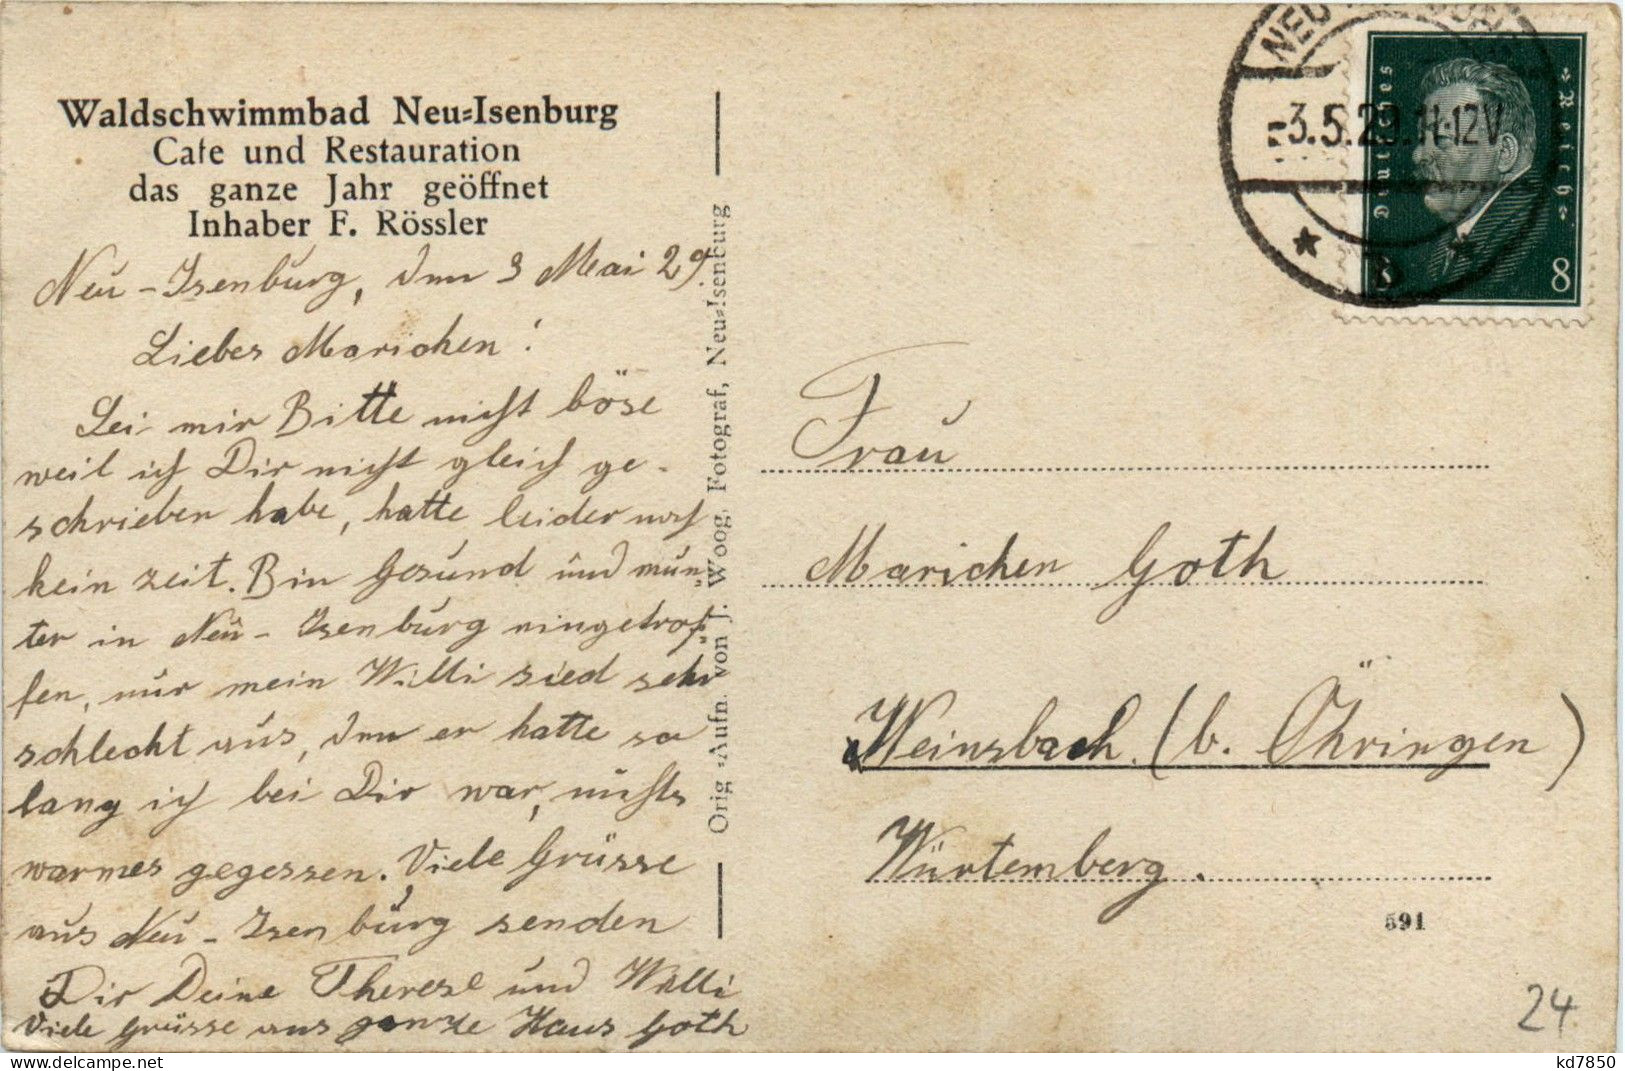 Waldschwimmbad Neu=Isenburg
Cafe und Restauration
das ganze Jahr geöffnet
Inhaber F. Rössler
Neu-Isenburg, den 3 Mai 29.
Liebes Marichen!
Sei mir Bitte nicht böse
weil ich Dir nicht gleich ge-
schrieben habe, hatte leider noch
kein zeit. Bin Gesund und mun-
ter in Neu-Isenburg eingetrof-
fen, nur mein Willi sied sehr
schlecht aus, den er hatte so
lang ich bei Dir war, nichts
warmes gegessen. Viele Grüsse
aus Neu-Isenburg senden
Dir Deine Therese und Willi
Viele Grüsse ans ganze Haus Goth
Orig.=Aufn. von J. Woog, Fotograf, Neu=Isenburg
NEU
-3.5.29.11-12V
Deutsches Reich
8 8
Frau
Marichen Goth
Weinsbach (b. Öhringen)
Würtemberg.
591
24
kd7850